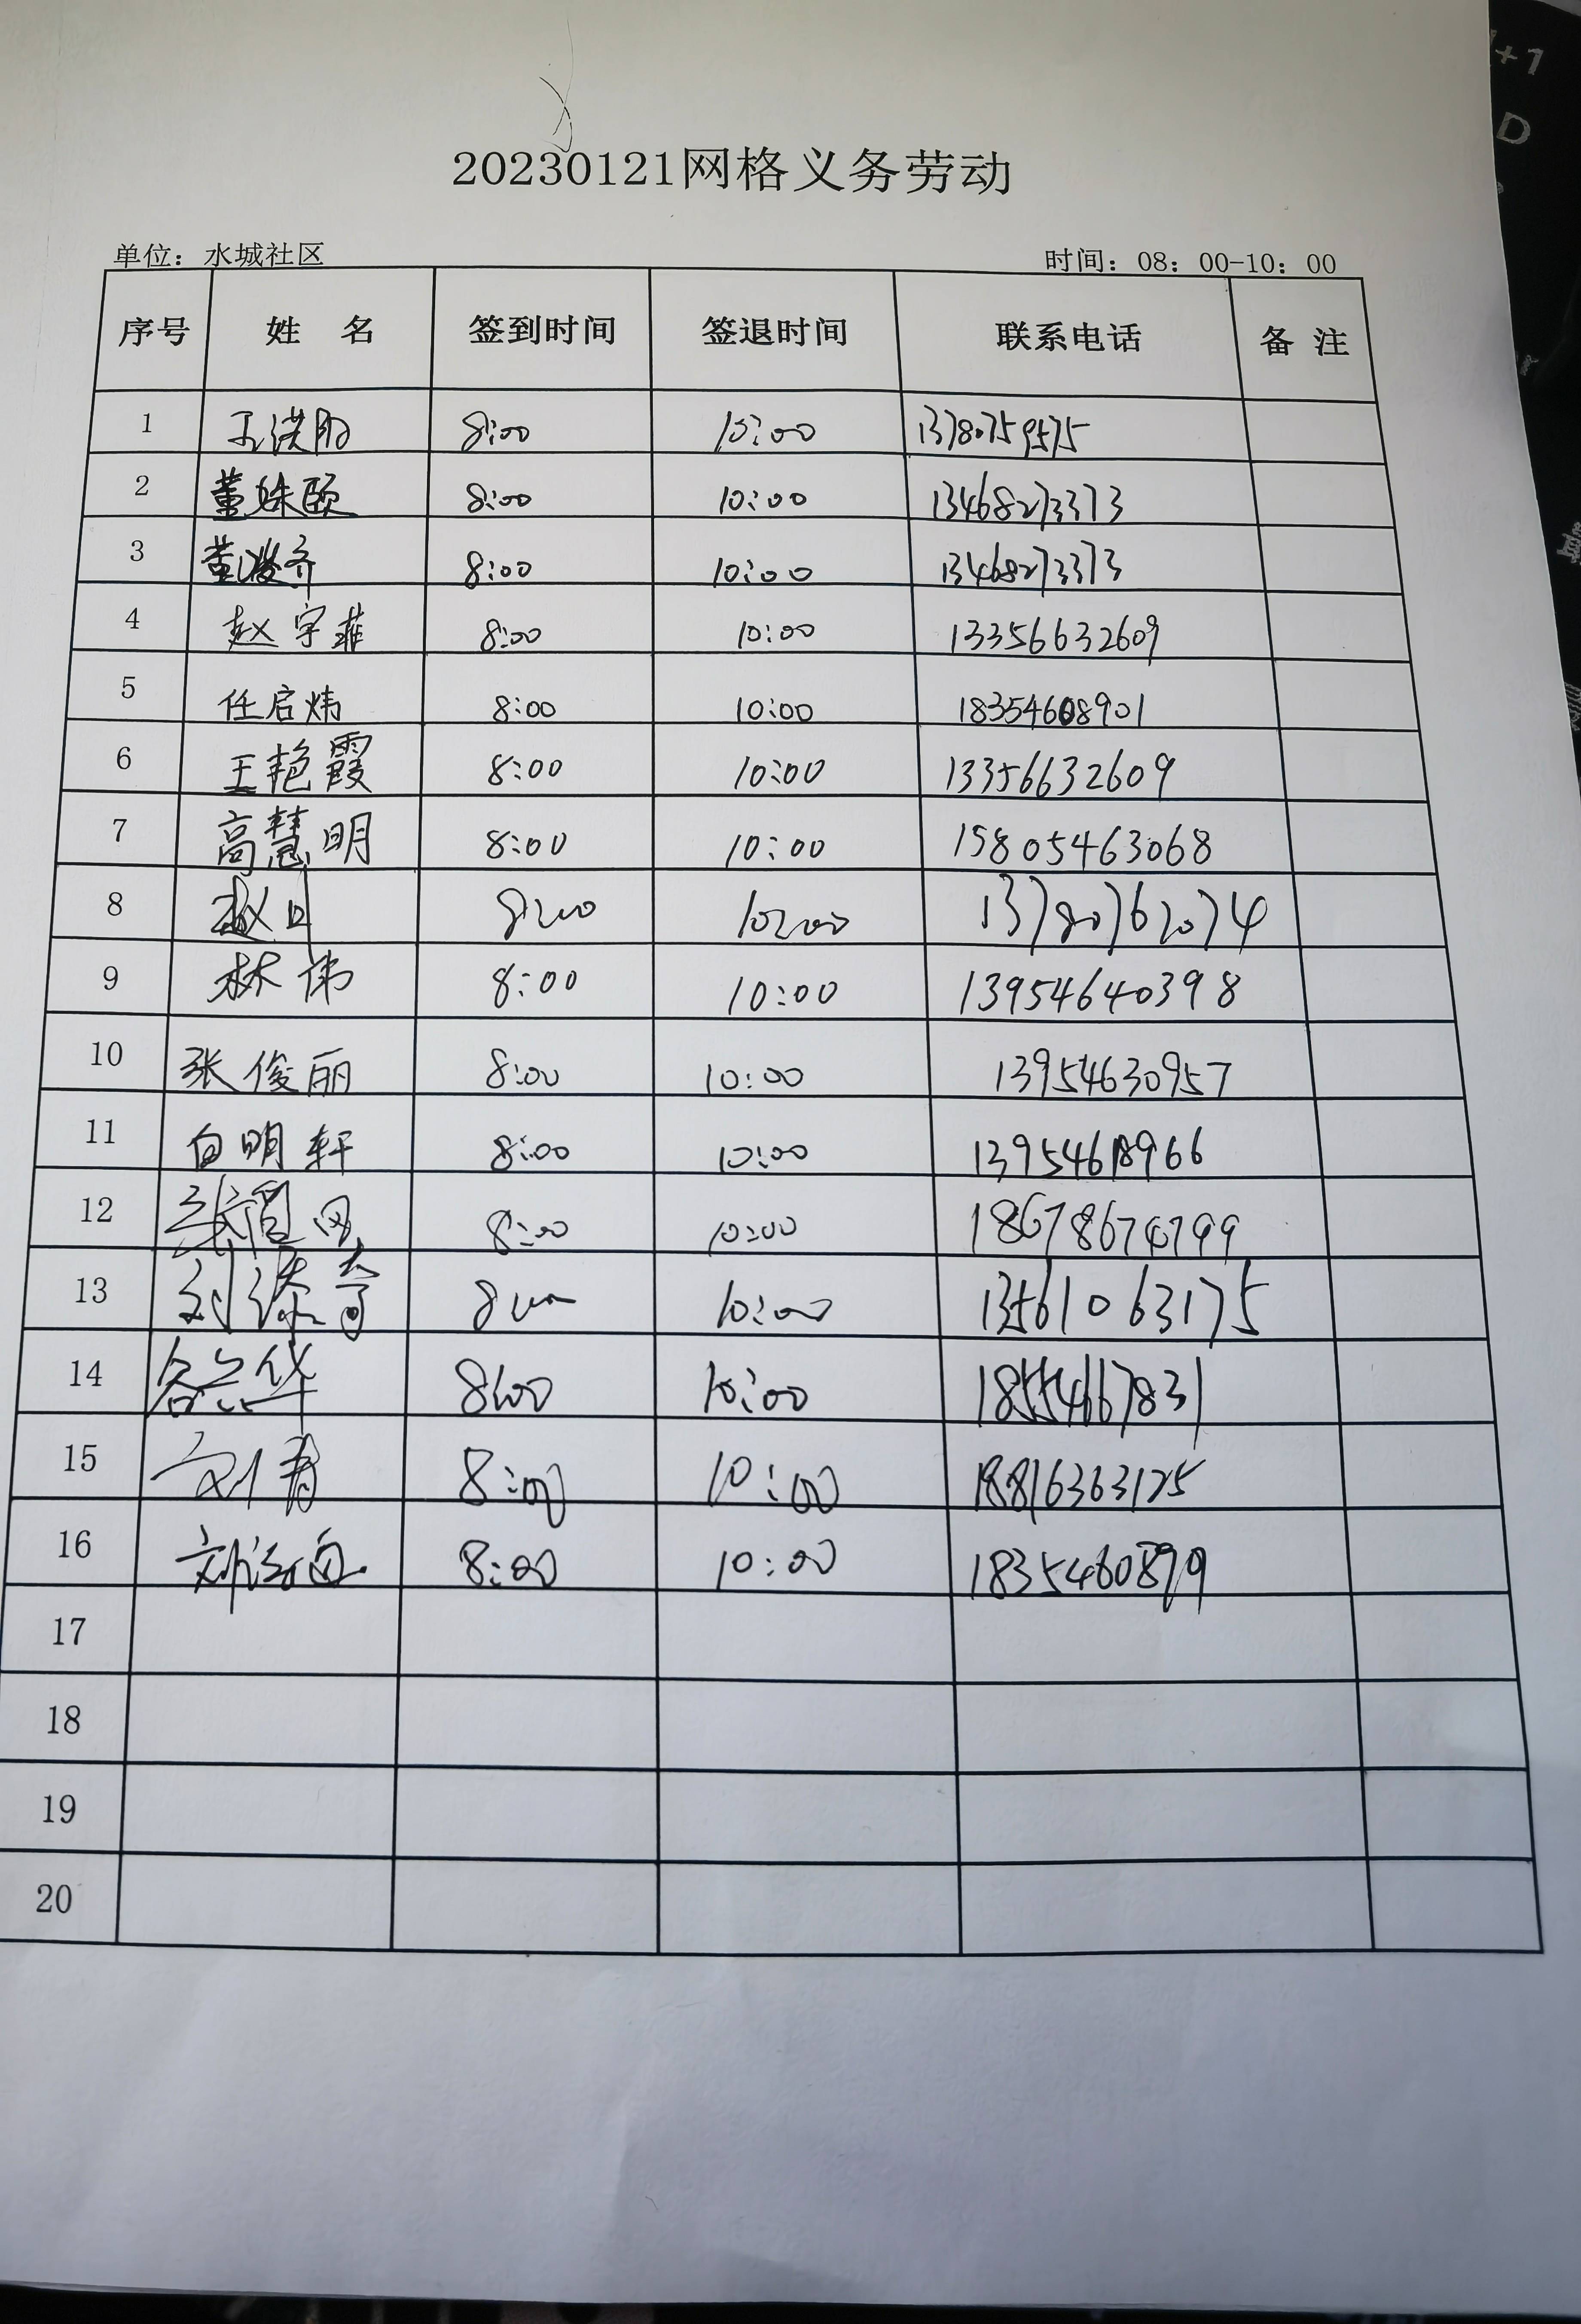 20230121网格义务劳动
单位：水城社区 时间：08：00-10：00
序号 姓 名 签到时间 签退时间 联系电话 备 注
1 8:00 10:00 13780759575
2 董姝颐 8:00 10:00 13468273373
3 董浚齐 8:00 10:00 13468273373
4 赵宇菲 8:00 10:00 13356632609
5 任启炜 8:00 10:00 18354608901
6 王艳霞 8:00 10:00 13356632609
7 高慧明 8:00 10:00 15805463068
8 8:00 10:00 13780762074
9 林伟 8:00 10:00 13954640398
10 张俊丽 8:00 10:00 13954630957
11 白明轩 8:00 10:00
12 8:00 10:00
13 刘添奇 8:00 10:00 13561063175
14 8:00 10:00 18554667831
15 刘青 8:00 10:00
16 8:00 10:00
17
18
19
20
+1
D